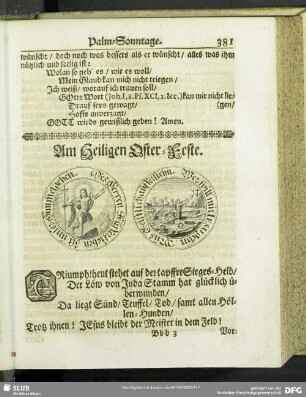 Palm-Sonntage. 381
wünscht / doch noch was bessers als er wünscht / alles was ihm
nützlich und seelig ist:
Wolan so geh' es / wie es woll /
Mein Glaub kan mich nicht triegen /
Ich weiß / worauf ich trauen soll /
GOtts Wort (Joh. I, 8. Ps. XCI, 2. &c.) kan mir nicht lie-
Drauf seys gewagt / (gen /
Hoffs unverzagt /
GOTT wirds gewißlich geben! Amen.
Am Heiligen Oster-Feste.
TRiumph! heut stehet auf der tapffre Sieges-Held /
Der Löw von Juda Stamm hat glücklich ü-
berwunden /
Da liegt Sünd / Teuffel / Tod / samt allen Höl-
len-Hunden /
Trotz ihnen! JEsus bleibt der Meister in dem Feld!
Bbb 3 Vor-
SLUB